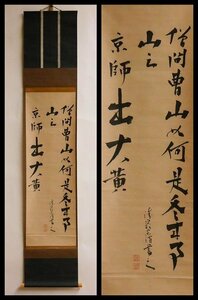 僧問曹山如何是冬来事
山云
京師出大黄